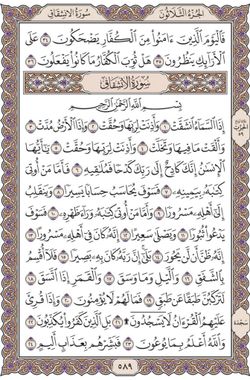 سُورَةُ الانشِقَاقِ الجُزْءُ الثَّلَاثُونَ
فَالْيَوْمَ الَّذِينَ آمَنُوا مِنَ الْكُفَّارِ يَضْحَكُونَ ٣٤ عَلَى
الْأَرَائِكِ يَنظُرُونَ ٣٥ هَلْ ثُوِّبَ الْكُفَّارُ مَا كَانُوا يَفْعَلُونَ ٣٦
سُورَةُ الانشِقَاقِ
بِسْمِ اللَّهِ الرَّحْمَٰنِ الرَّحِيمِ
إِذَا السَّمَاءُ انشَقَّتْ ١ وَأَذِنَتْ لِرَبِّهَا وَحُقَّتْ ٢ وَإِذَا الْأَرْضُ مُدَّتْ ٣
وَأَلْقَتْ مَا فِيهَا وَتَخَلَّتْ ٤ وَأَذِنَتْ لِرَبِّهَا وَحُقَّتْ ٥ يَا أَيُّهَا
الْإِنسَانُ إِنَّكَ كَادِحٌ إِلَىٰ رَبِّكَ كَدْحًا فَمُلَاقِيهِ ٦ فَأَمَّا مَنْ أُوتِيَ
كِتَابَهُ بِيَمِينِهِ ٧ فَسَوْفَ يُحَاسَبُ حِسَابًا يَسِيرًا ٨ وَيَنقَلِبُ
إِلَىٰ أَهْلِهِ مَسْرُورًا ٩ وَأَمَّا مَنْ أُوتِيَ كِتَابَهُ وَرَاءَ ظَهْرِهِ ١٠ فَسَوْفَ
يَدْعُو ثُبُورًا ١١ وَيَصْلَىٰ سَعِيرًا ١٢ إِنَّهُ كَانَ فِي أَهْلِهِ مَسْرُورًا ١٣
إِنَّهُ ظَنَّ أَن لَّن يَحُورَ ١٤ بَلَىٰ إِنَّ رَبَّهُ كَانَ بِهِ بَصِيرًا ١٥ فَلَا أُقْسِمُ
بِالشَّفَقِ ١٦ وَاللَّيْلِ وَمَا وَسَقَ ١٧ وَالْقَمَرِ إِذَا اتَّسَقَ ١٨
لَتَرْكَبُنَّ طَبَقًا عَن طَبَقٍ ١٩ فَمَا لَهُمْ لَا يُؤْمِنُونَ ٢٠ وَإِذَا قُرِئَ
عَلَيْهِمُ الْقُرْآنُ لَا يَسْجُدُونَ ۩ ٢١ بَلِ الَّذِينَ كَفَرُوا يُكَذِّبُونَ ٢٢
وَاللَّهُ أَعْلَمُ بِمَا يُوعُونَ ٢٣ فَبَشِّرْهُم بِعَذَابٍ أَلِيمٍ ٢٤
٥٨٩